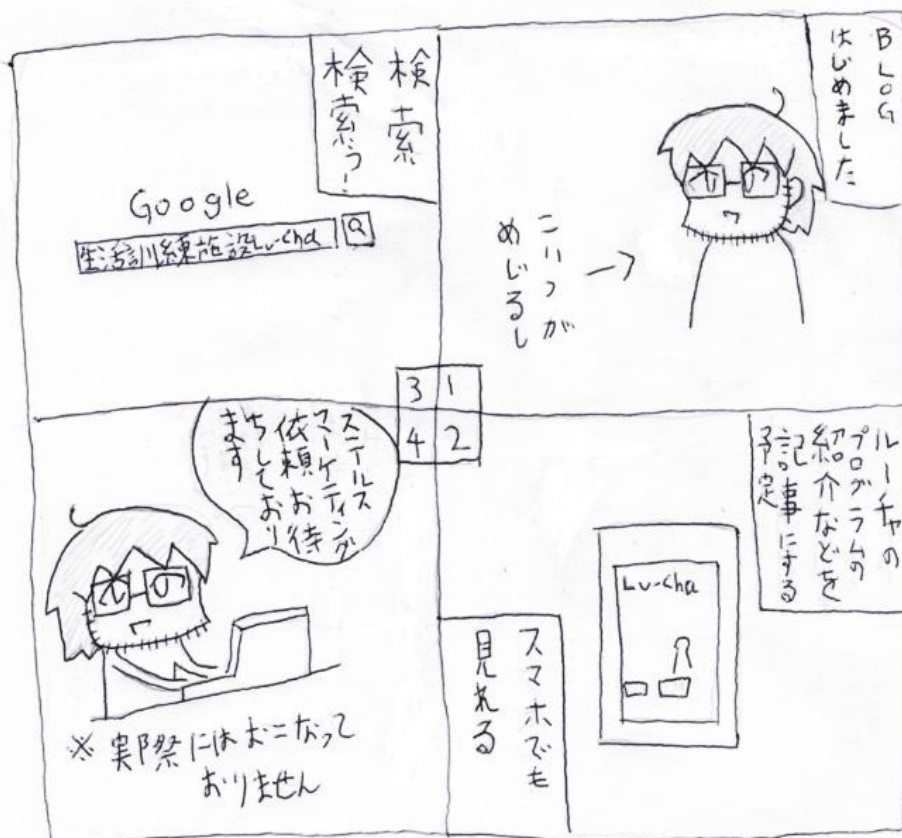 BLOG
はじめました
こいつが
めじるし
ルーチャの
プログラムの
紹介などを
記事にする
予定
Lu-Cha
スマホでも
見れる
検索
検索ぅ!
Google
生活訓練施設Lu-Cha
ステルス
マーケティング
依頼お待
ちしており
ます
※実際にはおこなって
おりません
3 1
4 2